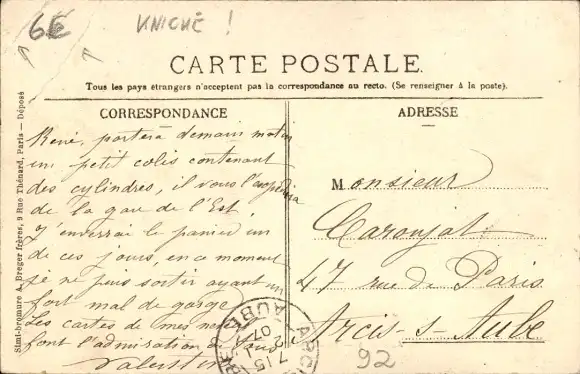 6€
KNICKÉ !
CARTE POSTALE.
Tous les pays étrangers n'acceptent pas la correspondance au recto. (Se renseigner à la poste).
Simi-bromure A. Breger frères, 9 Rue Thénard, Paris — Déposé
CORRESPONDANCE
René, portera demain matin
un petit colis contenant
des cylindres, il vous l'expédiera
de la gare de l'Est.
J'enverrai le panier un
de ces jours, en ce moment
je ne puis sortir ayant un
fort mal de gorge.
Les cartes de mes
font l'admiration de
Valentin
ADRESSE
Monsieur
Caroujat
47 rue de Paris
Arcis-s-Aube
92
AUBE
7 15
07